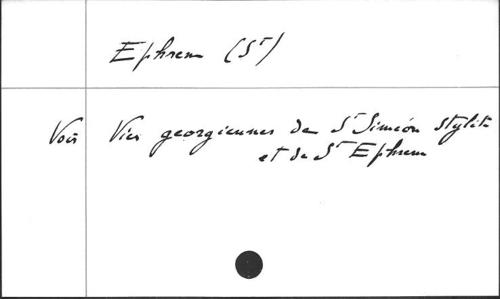 Ephrem (St)
Voir Vies georgiennes de St Siméon Stylite
et de St Ephrem